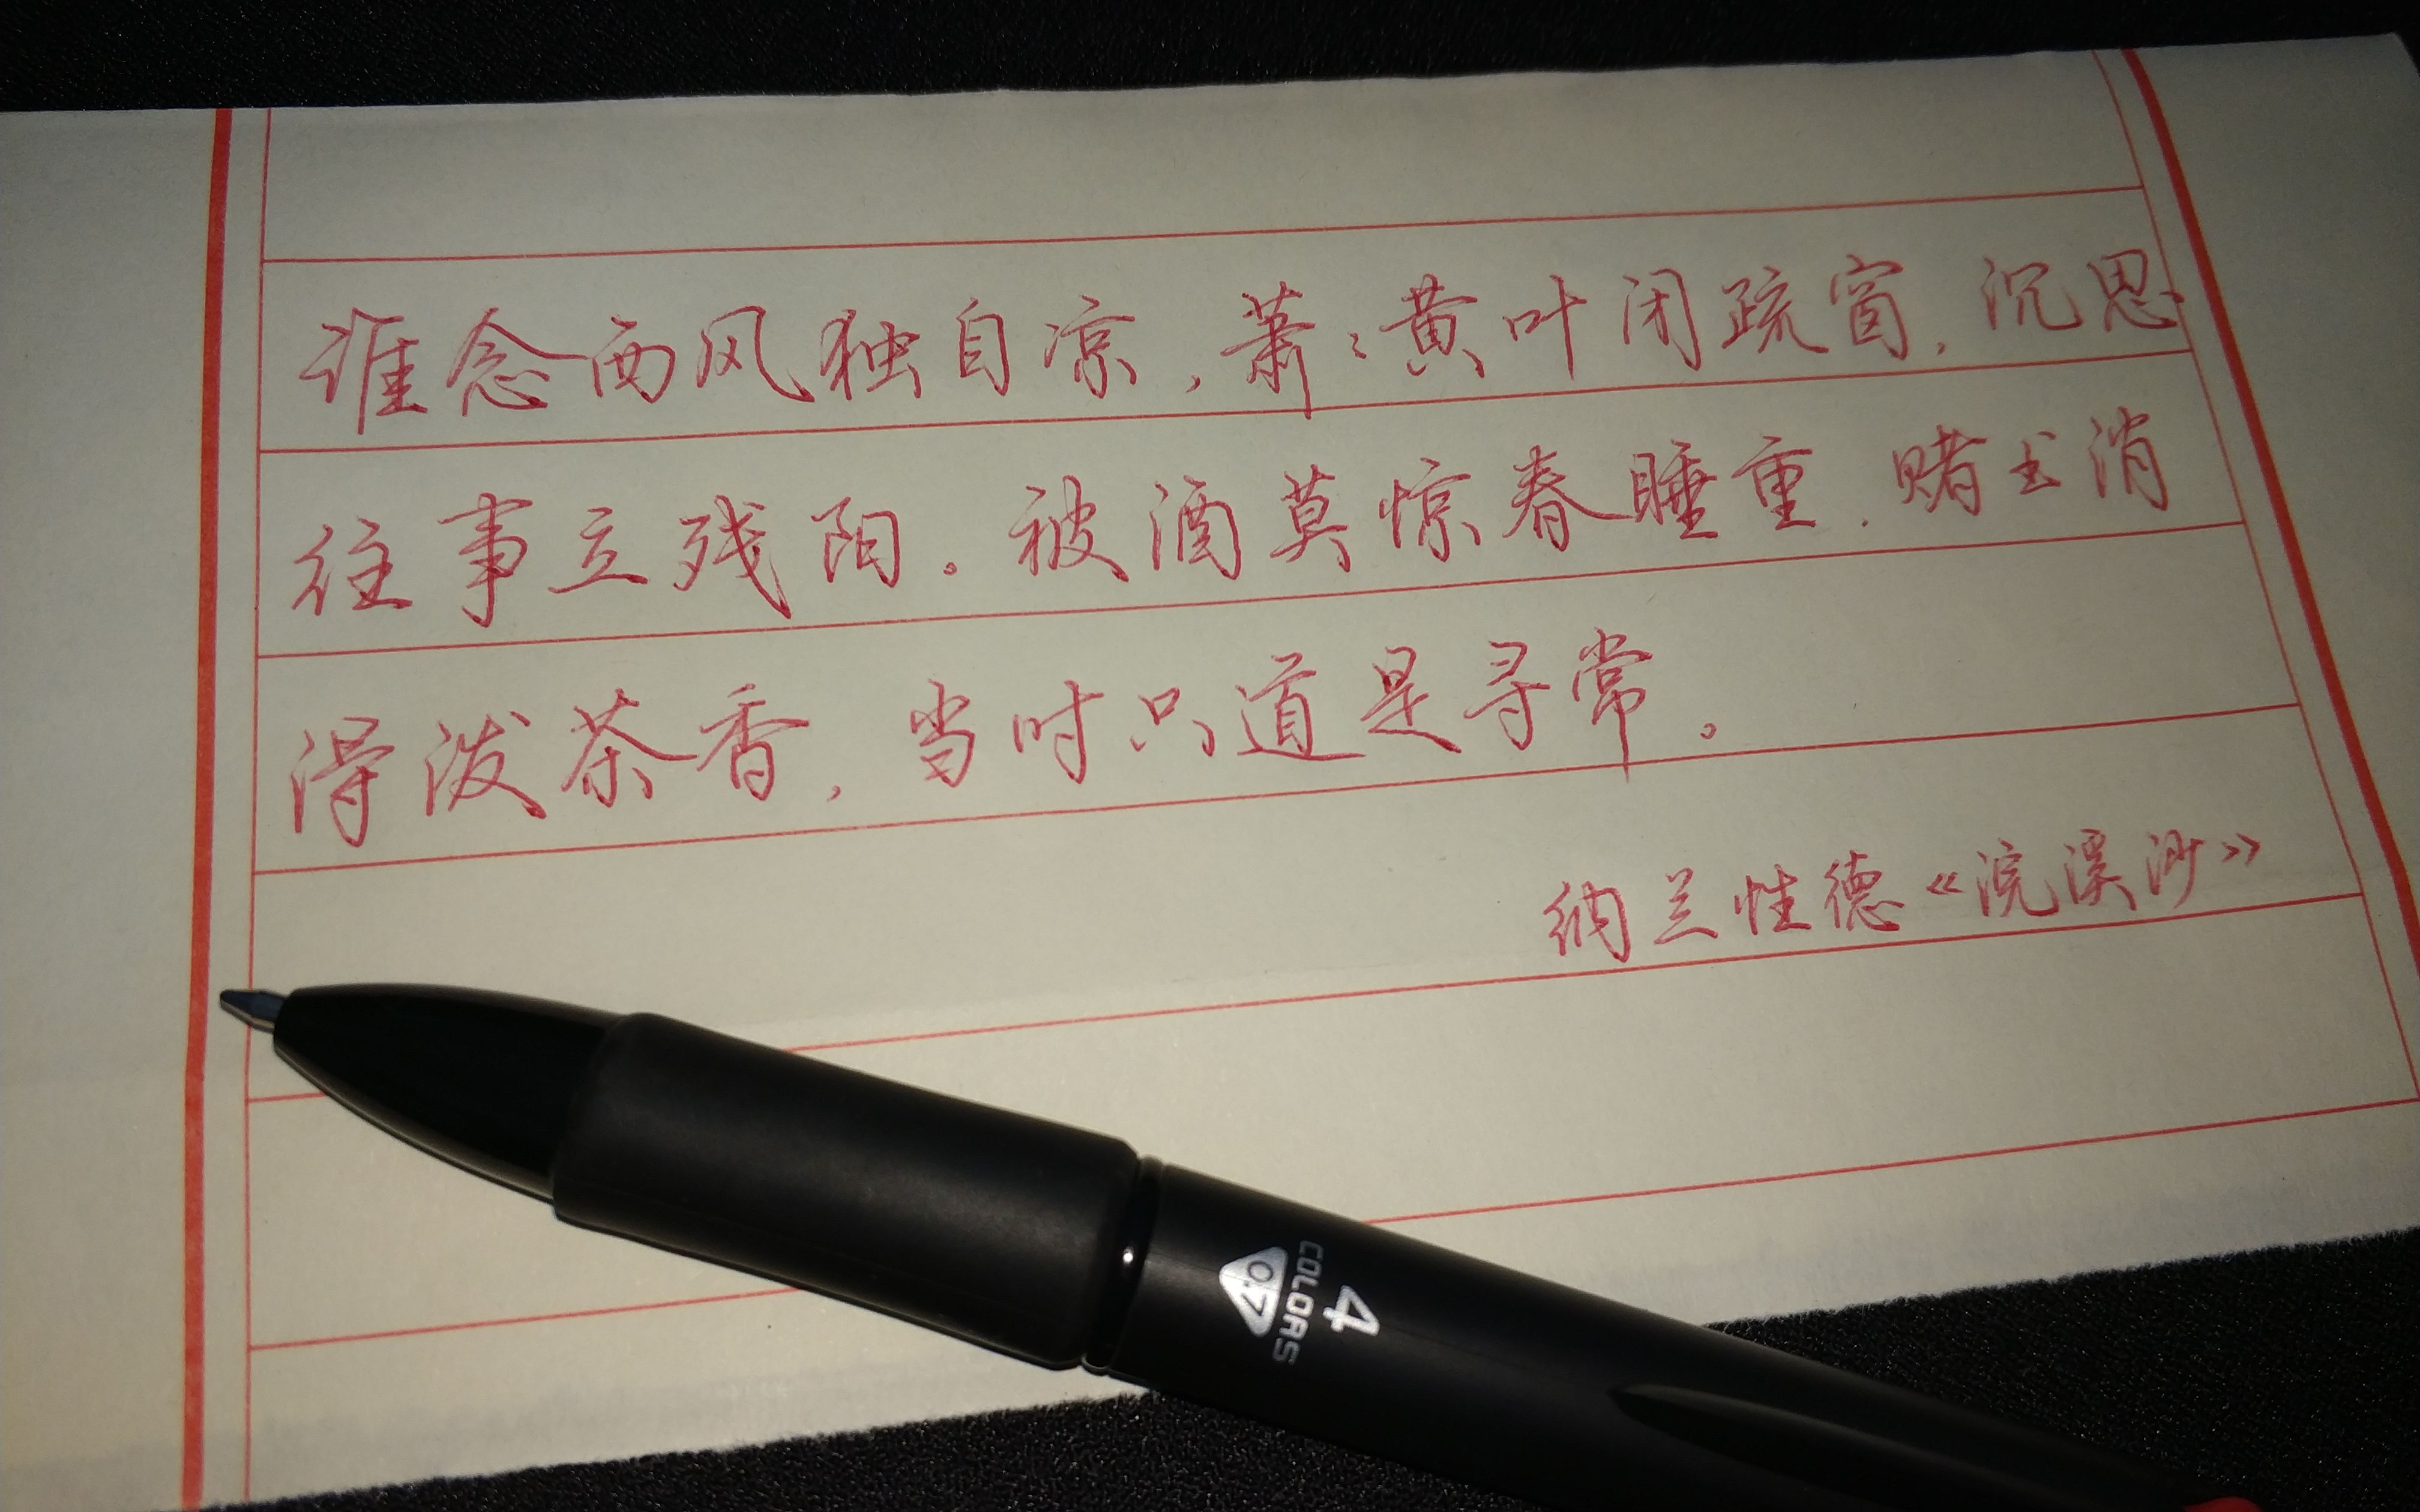 谁念西风独自凉,萧々黄叶闭疏窗,沉思
往事立残阳。被酒莫惊春睡重,赌书消
得泼茶香,当时只道是寻常。
纳兰性德《浣溪沙》
4
COLORS
0.7